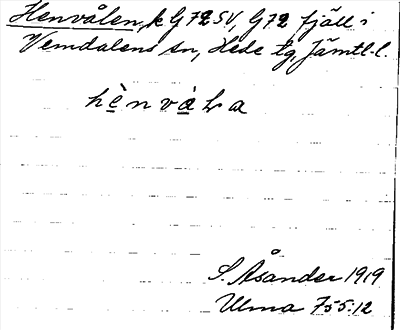 Henvålen, k G72SV, G72 fjäll i
Vemdalens sn, Hede tg, Jämtl. l.
hènvàLa
S. Åsander 1919
Ulma 755:12